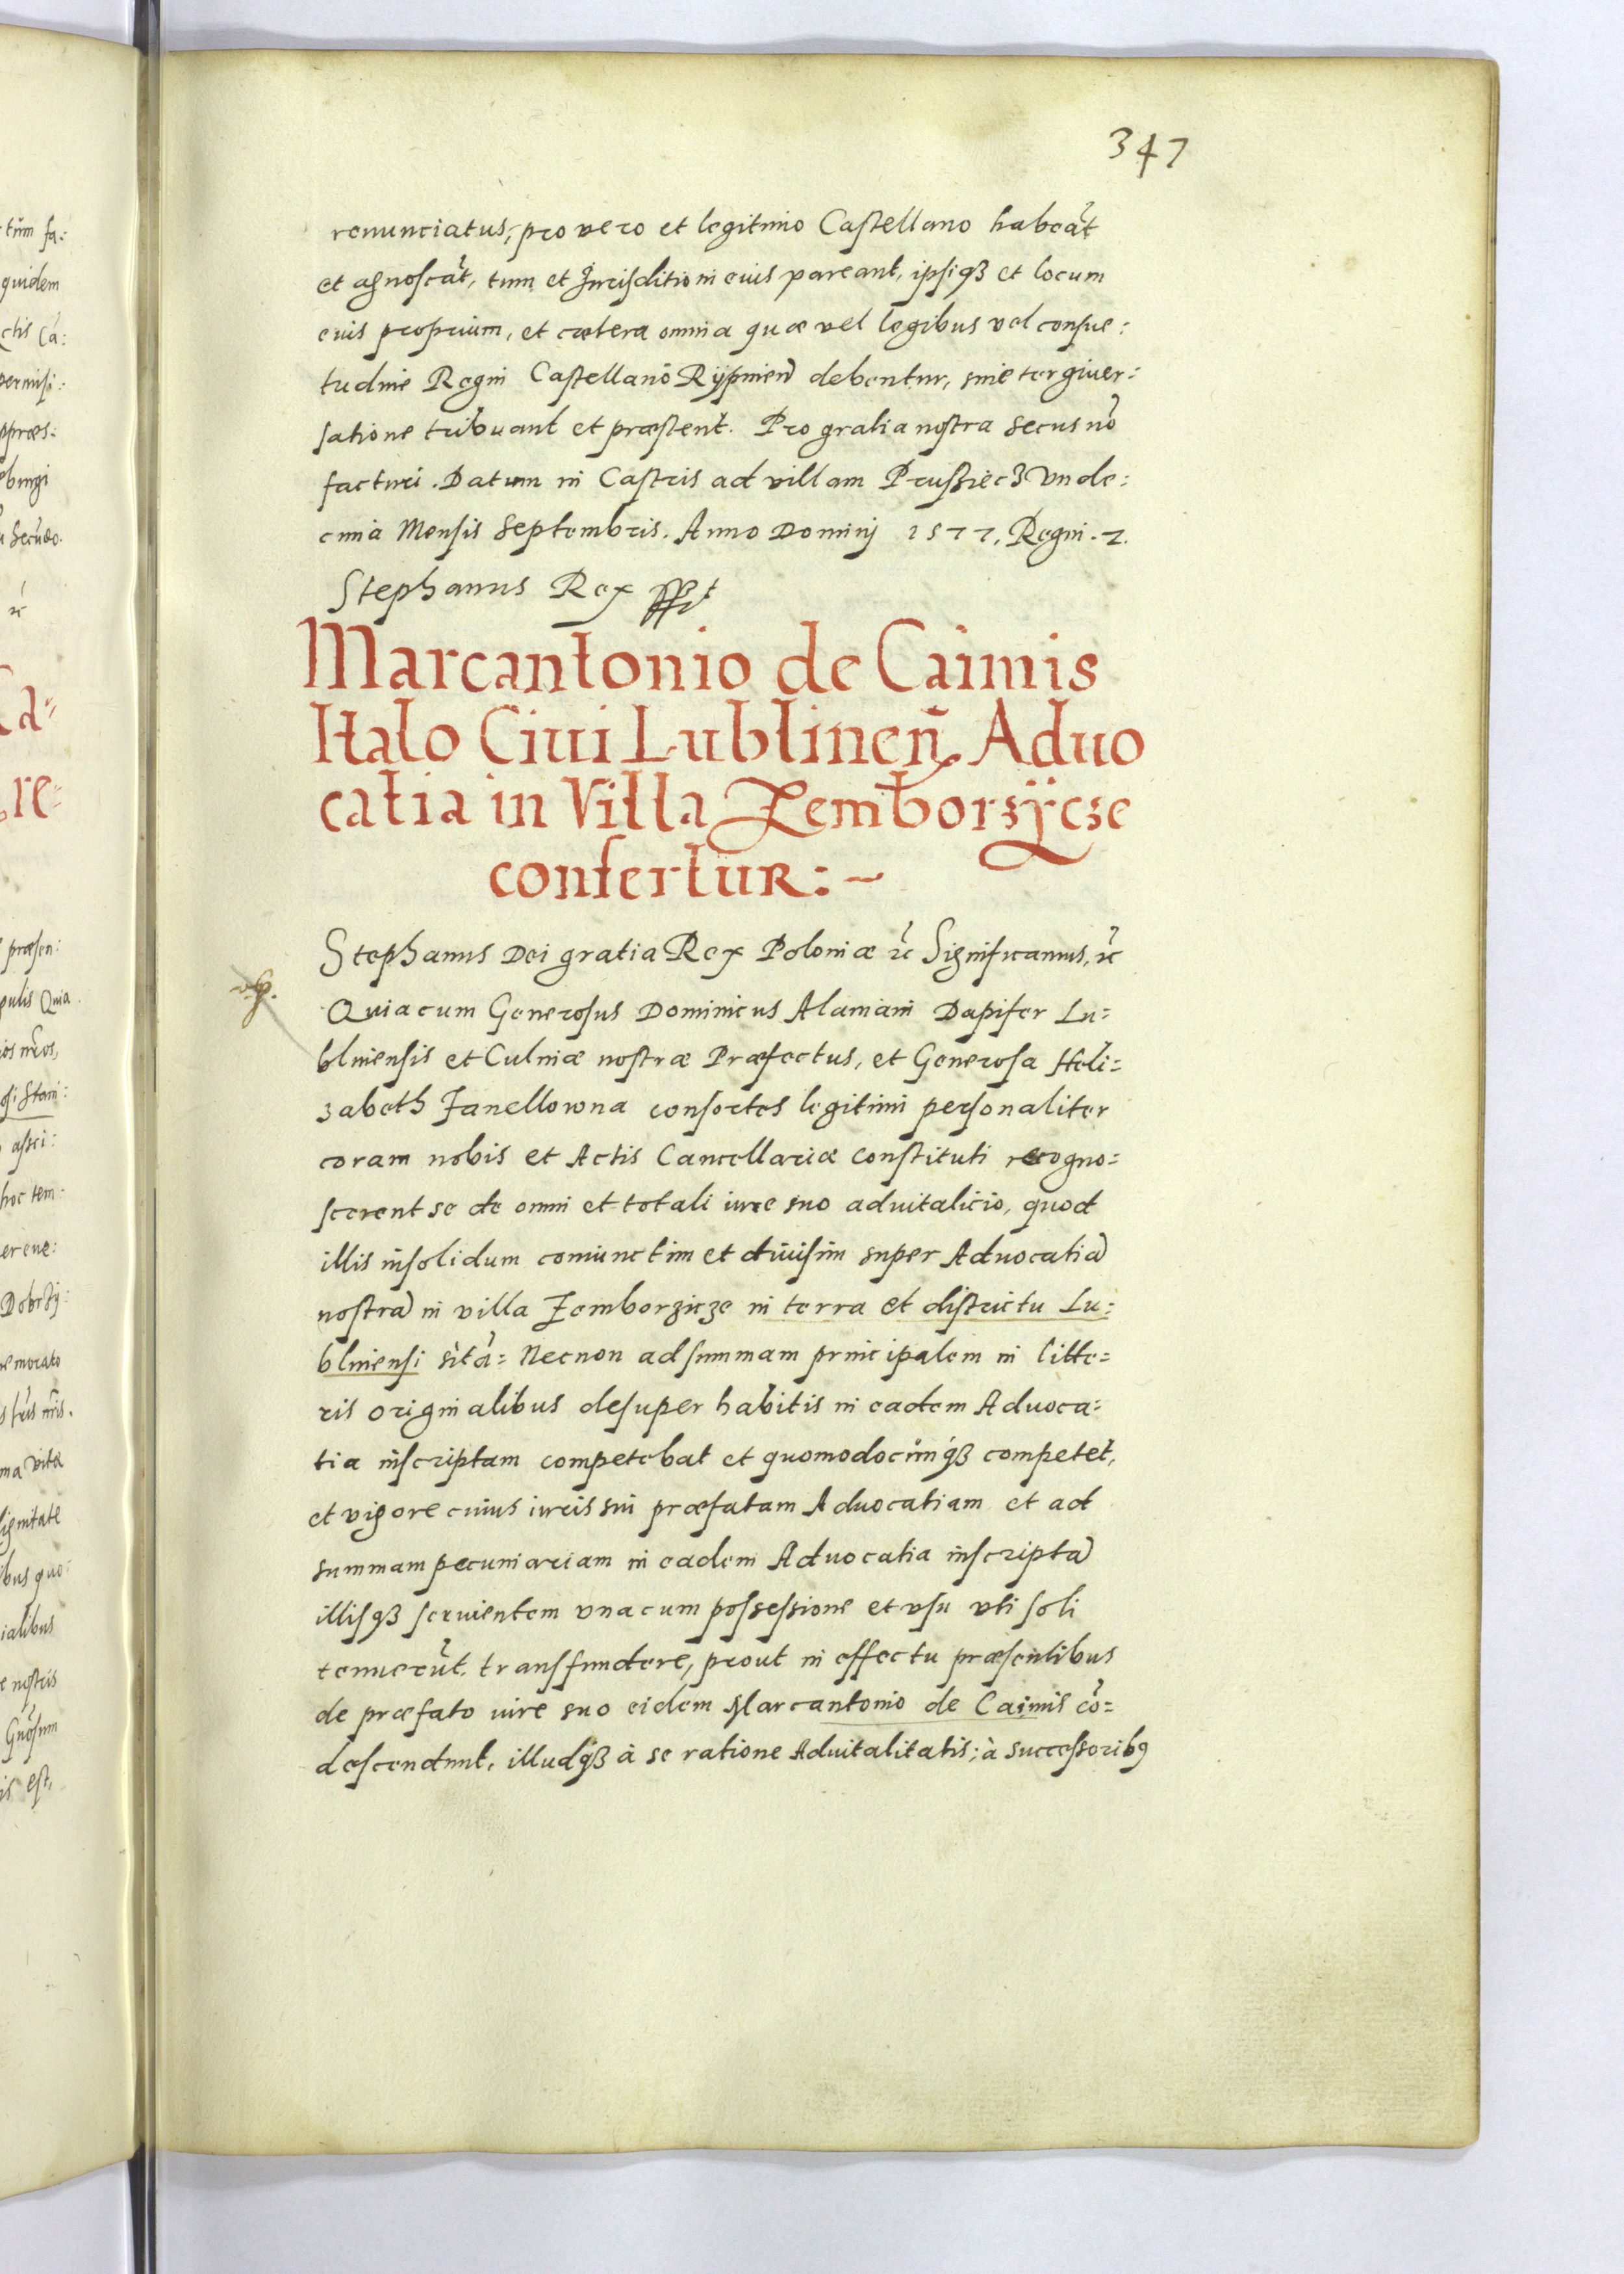 347
renunciatus, pro vero et legitimo Castellano habeāt
et agnoscāt, tum et Jurisditioni eius pareant, ipsiqȝ et locum
euis proprium, et cætera omnia quæ vel legibus vel consue:
tudine Regni Castellanō Rÿpinen̄ debentur, sine tergiuer:
satione tribuant et præstent. Pro gratia nostra secus nō
facturi. Datum in Castris ad villam Prussiecz Vnde:
cima Mensis Septembris. Anno Dominj 1577, Regni. 2.
Stephanus Rex sst
Marcantonio de Caimis
Italo Ciui Lublinen̄ Aduo
catia in Villa Zemborzÿcze
confertur:~
Stephanus Dei gratia Rex Poloniæ ꝛc̄ Significamus, ꝛc̄
Quia cum Generosus Dominicus Alamani Dapifer Lu:
blinensis et Culinæ nostræ Præfectus, et Generosa Heli:
zabeth Janellowna consortes legitimi personaliter
coram nobis et Actis Cancellariæ constituti recogno:
scerent se de omni et totali iure suo aduitalicio, quod
illis insolidum coniunctim et diuisim super Aduocatiā
nostrā in villa Zemborzicze in terra et districtu Lu:
blinensi sitā: Necnon ad summam principalem in litte:
ris originalibus desuper habitis in eadem Aduoca:
tia inscriptam competebat et quomodocūnqȝ competet,
et vigore cuius iuris sui præfatam Aduocatiam et ad
summam pecuniariam in eadem Aduocatia inscriptā
illisqȝ seruientem vna cum possessione et vsu vti soli
tenuerūt. transfundere, prout in effectu præsentibus
de præfato iure suo eidem Marcantonio de Caimis cō:
descendunt, illudqȝ à se ratione Aduitalitatis; à successoribꝯ